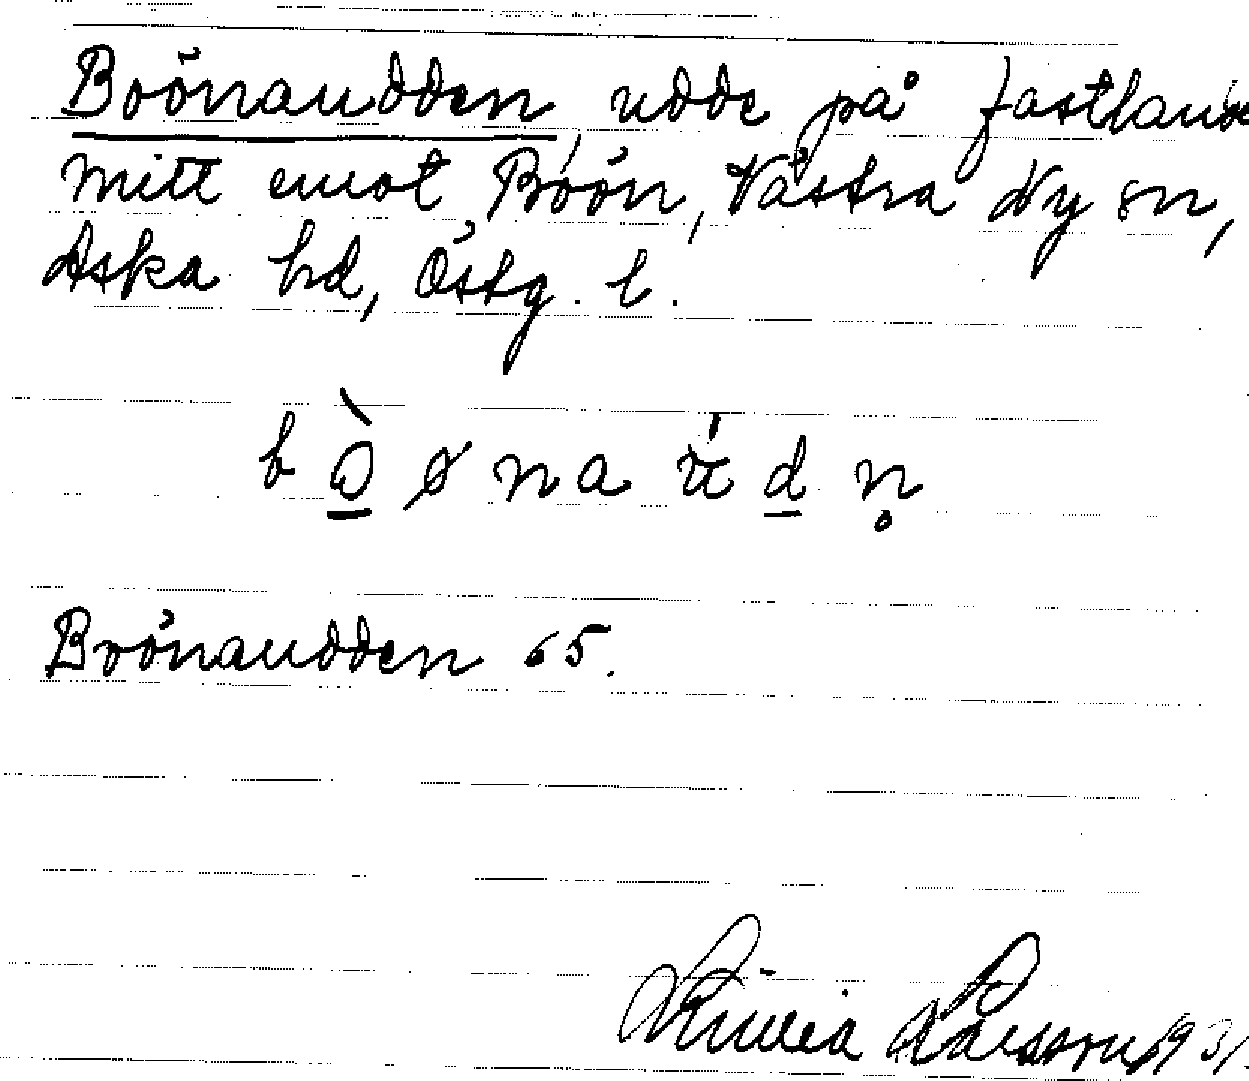 Boönaudden, udde på fastland
mitt emot Boön, Västra Ny sn,
Aska hd, Östg. l.
b ò̱ ø n a ú d̲ n̥
Boönaudden 65.
Linnea Larsson 1931.